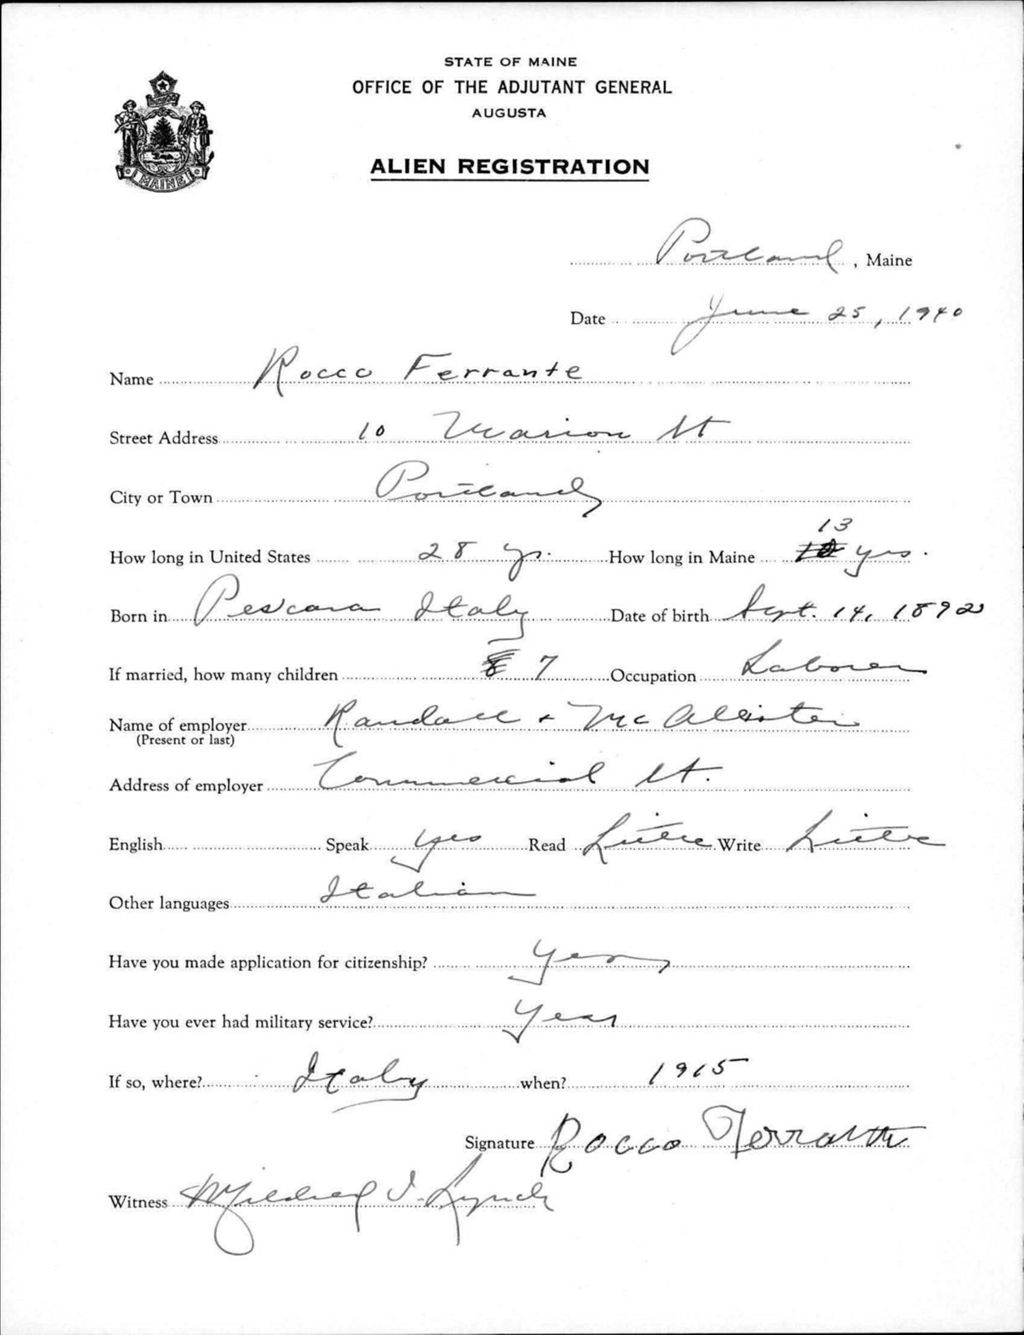 STATE OF MAINE
OFFICE OF THE ADJUTANT GENERAL
AUGUSTA
ALIEN REGISTRATION
MAINE
Portland, Maine
Date June 25, 1940
Name Rocco Ferrante
Street Address 10 Marion St
City or Town Portland
13
How long in United States 28 yrs. How long in Maine yrs.
Born in Pescara Italy Date of birth Sept. 14, 1892
If married, how many children 7 Occupation Laborer
Name of employer Randall + McAllister
(Present or last)
Address of employer Commercial St.
English Speak yes Read Little Write Little
Other languages Italian
Have you made application for citizenship? Yes
Have you ever had military service? Yes
If so, where? Italy when? 1915
Signature Rocco Ferrante
Witness Mildred I. Lynch